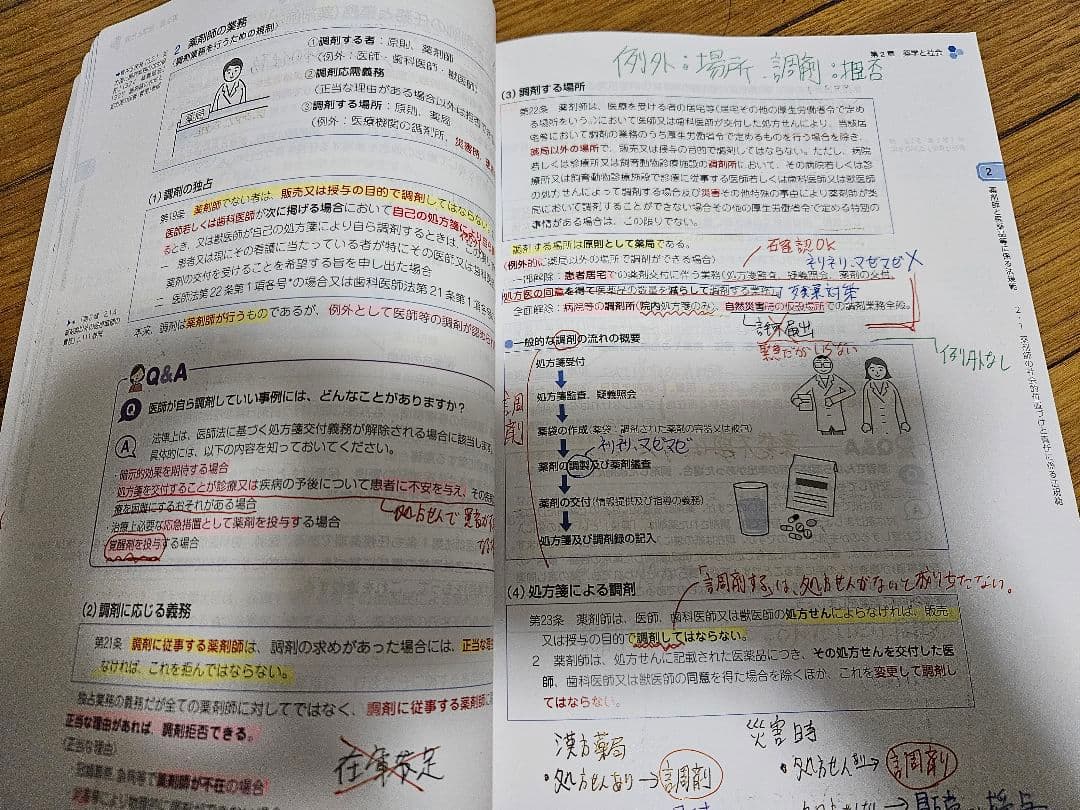 2 薬剤師の業務
(調剤業務を行うための規制)
①調剤する者：原則、薬剤師
(例外：医師・歯科医師・獣医師)
②調剤応需義務
(正当な理由がある場合以外は拒否でき
③調剤する場所：原則、薬局
(例外：医療機関の調剤所、災害時、
薬局
(1) 調剤の独占
第19条 薬剤師でない者は、販売又は授与の目的で調剤してはならない
医師若しくは歯科医師が次に掲げる場合において自己の処方箋に
るとき、又は獣医師が自己の処方箋により自ら調剤するときは、この
一 患者又は現にその看護に当たっている者が特にその医師又は歯科
薬剤の交付を受けることを希望する旨を申し出た場合
二 医師法第22条第1項各号*の場合又は歯科医師法第21条第1項各
本来、調剤は薬剤師が行うものであるが、例外として医師等の調剤が認め
Q&A
Q 医師が自ら調剤していい事例には、どんなことがありますか？
A 法律上は、医師法に基づく処方箋交付義務が解除される場合に該当します。
具体的には、以下の内容を知っておいてください。
・暗示的効果を期待する場合
・処方箋を交付することが診療又は疾病の予後について患者に不安を与え、その疾病
療を困難にするおそれがある場合
処方せんで患者が
・治療上必要な応急措置として薬剤を投与する場合
・覚醒剤を投与する場合
(2) 調剤に応じる義務
第21条 調剤に従事する薬剤師は、調剤の求めがあった場合には、正当な理
なければ、これを拒んではならない。
独占業務の義務だが全ての薬剤師に対してではなく、調剤に従事する薬剤師に
正当な理由があれば、調剤拒否できる。
(正当な理由)
薬剤師が不在の場合
在庫不足
第2章 薬学と社会
例外：場所、調剤：拒否
(3) 調剤する場所
第22条 薬剤師は、医療を受ける者の居宅等(居宅その他の厚生労働省令で定め
る場所をいう。)において医師又は歯科医師が交付した処方せんにより、当該居
宅等において調剤の業務のうち厚生労働省令で定めるものを行う場合を除き、
薬局以外の場所で、販売又は授与の目的で調剤してはならない。ただし、病院
若しくは診療所又は飼育動物診療施設の調剤所において、その病院若しくは診
療所又は飼育動物診療施設で診療に従事する医師若しくは歯科医師又は獣医師
の処方せんによって調剤する場合及び災害その他特殊の事由により薬剤師が薬
局において調剤することができない場合その他の厚生労働省令で定める特別の
事情がある場合は、この限りでない。
調剤する場所は原則として薬局である。
(例外的に薬局以外の場所で調剤ができる場合)
在確認OK
ネリネリ、マゼマゼ×
一部解除：患者居宅での薬剤交付に伴う業務(処方箋監査、疑義照会、薬剤の交付、
処方医の同意を得て医薬品の数量を減らして調剤する業務)
残薬対策
全面解除：病院等の調剤所(院内処方箋のみ)、自然災害時の収容場所での調剤業務全般。
診療所届出
例外なし
●一般的な調剤の流れの概要
調剤
処方箋受付
処方箋監査、疑義照会
薬袋の作成(薬袋：調剤された薬剤の容器又は被包)
ネリネリ、マゼマゼ
薬剤の調製及び薬剤鑑査
薬剤の交付(情報提供及び指導の義務)
処方箋及び調剤録の記入
(4) 処方箋による調剤
「調剤する」は、処方せんがないと成り立たない。
第23条 薬剤師は、医師、歯科医師又は獣医師の処方せんによらなければ、販売
又は授与の目的で調剤してはならない。
2 薬剤師は、処方せんに記載された医薬品につき、その処方せんを交付した医
師、歯科医師又は獣医師の同意を得た場合を除くほか、これを変更して調剤し
てはならない。
漢方薬局
・処方せんあり→調剤
災害時
・処方せんあり→調剤
2
薬剤師と医薬品等に係る法規範
2-1 薬剤師の社会的位置づけと責任に係る法規範